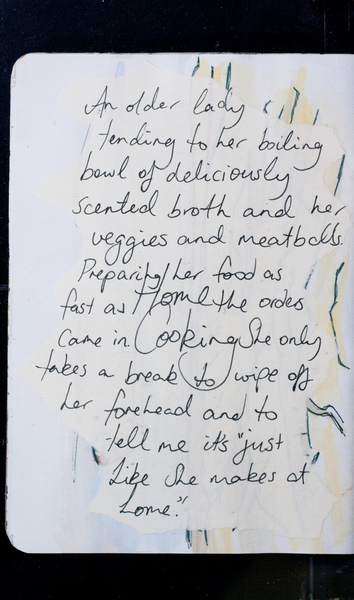 An older lady
tending to her boiling
bowl of deliciously
scented broth and her
veggies and meatballs.
Preparing her food as
fast as Home the orders
came in Cooking She only
takes a break to wipe off
her forehead and to
tell me it's "just
like she makes at
home."